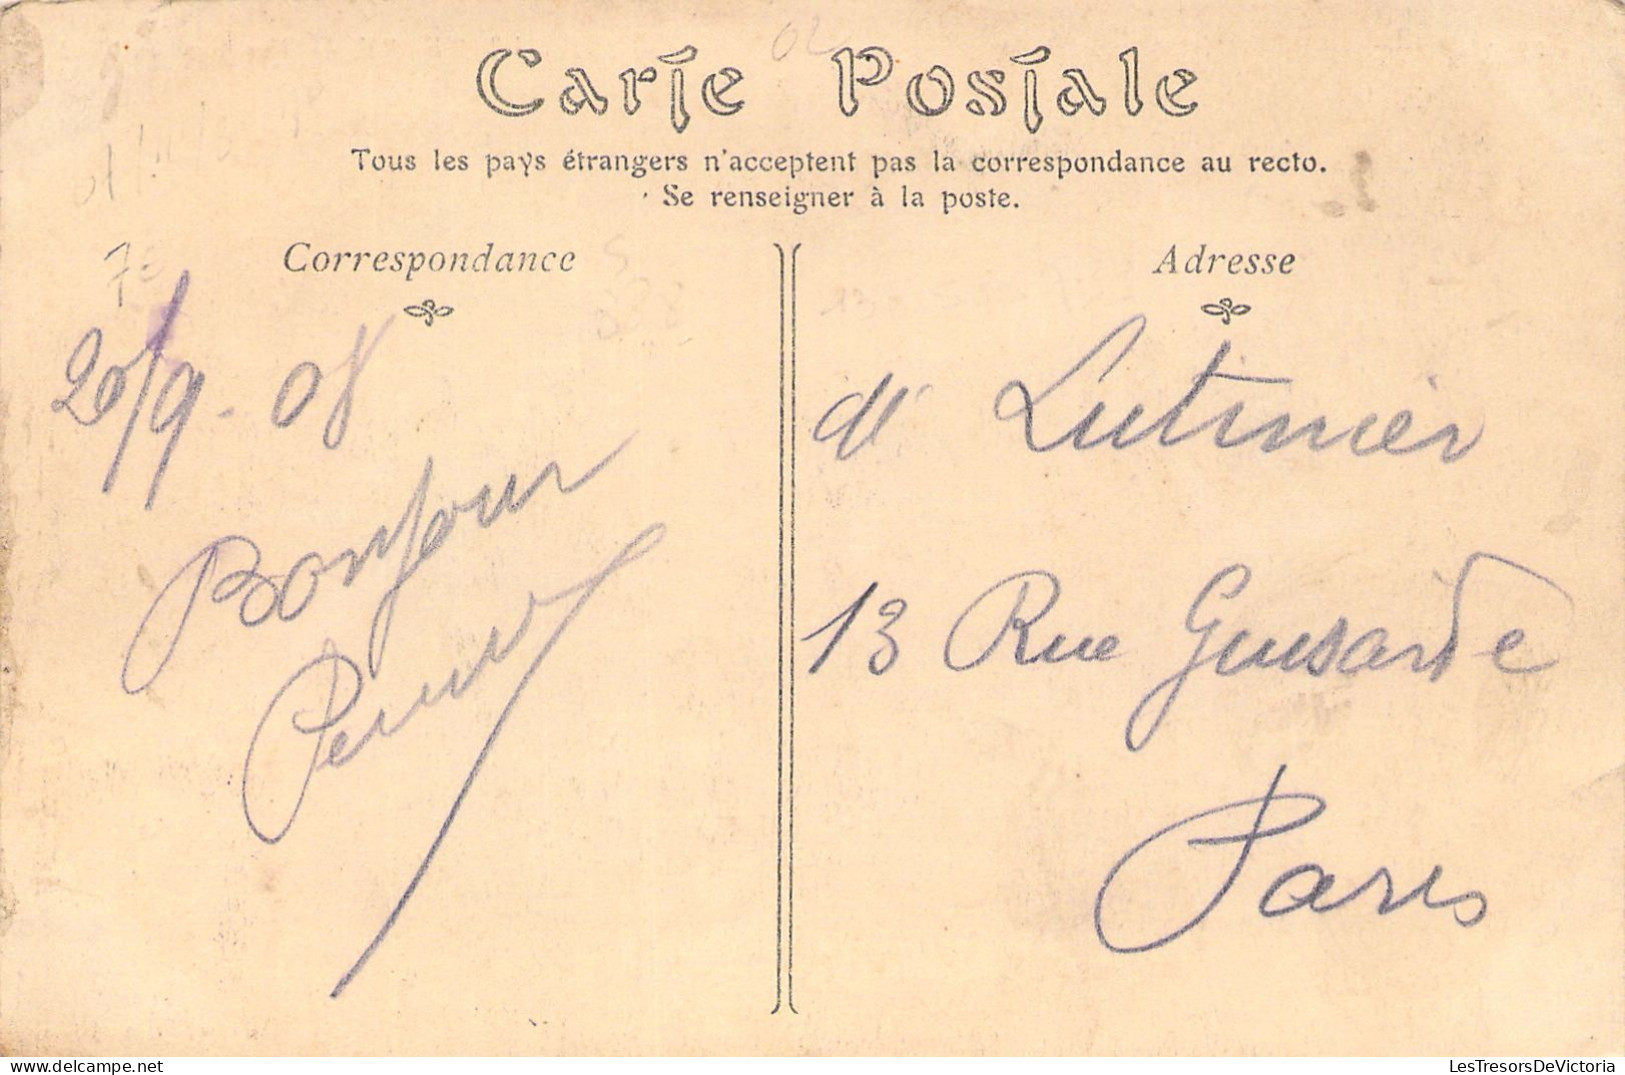 Carte Postale
Tous les pays étrangers n'acceptent pas la correspondance au recto.
Se renseigner à la poste.
Correspondance
Adresse
20/9.08
Bonjour
Mr Lutinier
13 Rue Guisarde
Paris
LesTresorsDeVictoria